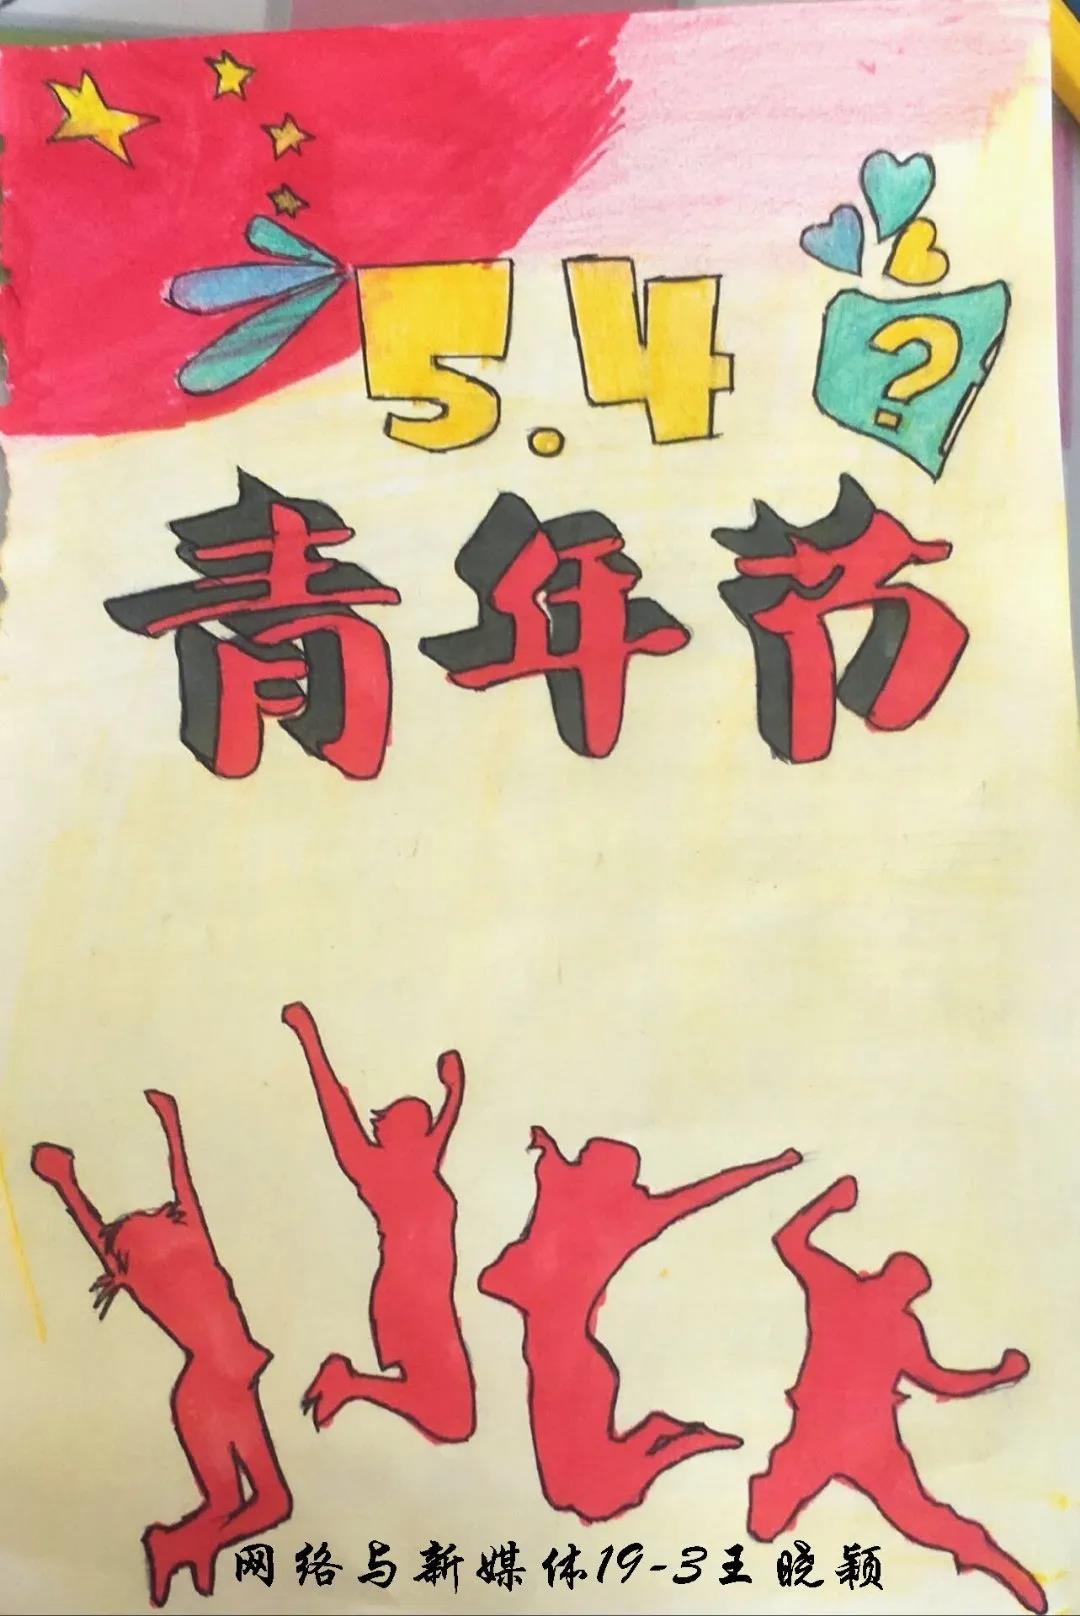 5.4
?
青年节
网络与新媒体19-3王晓颖